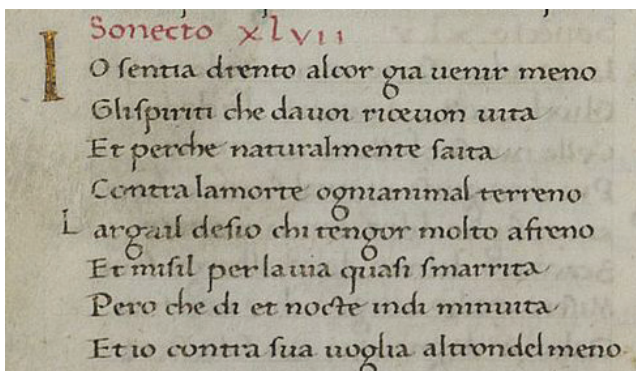 Sonecto xlvii
IO sentia drento alcor gia uenir meno
Glispiriti che dauoi riceuon uita
Et perche naturalmente saita
Contra lamorte ognianimal terreno
Largail desio chi tengor molto afreno
Et misil perlauia quasi smarrita
Pero che di et nocte indi minuita
Et io contra sua uoglia altrondelmeno